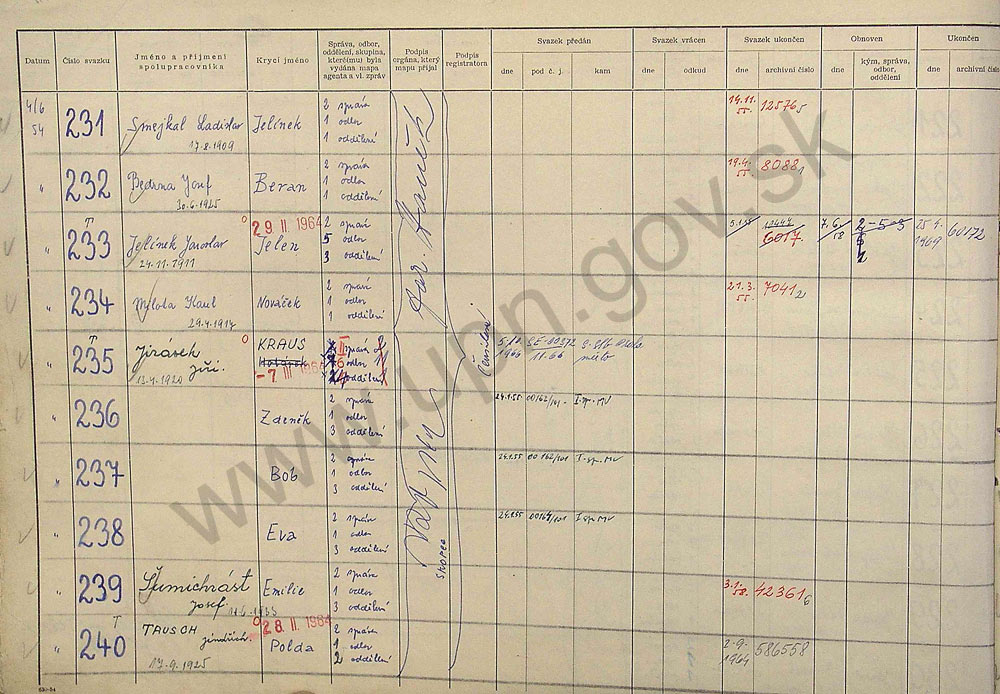 Datum
Číslo svazku
Jméno a příjmení spolupracovníka
Krycí jméno
Správa, odbor, oddělení, skupina, kterému(i) byla vydána mapa agenta a vl. zpráv
Podpis orgána, který mapu přijal
Podpis registratora
Svazek předán
dne
pod č. j.
kam
Svazek vrácen
dne
odkud
Svazek ukončen
dne
archivní číslo
Obnoven
dne
kým, správa, odbor, oddělení
Ukončen
dne
archivní čísl
4/6 54
231
Smejkal Ladislav
17.8.1909
Jelínek
2 správa
1 odbor
1 oddělení
14.11. 55.
12576,
"
232
Bedrna Josef
30.6.1925
Beran
2 správa
1 odbor
1 oddělení
19.4. 55.
80881
"
T
233
Jelínek Jaroslav
24.11.1911
29 II 1964
Jelen
2 správa
5 odbor
3 oddělení
6017.
7.6.
2-5-3
25 4. 1969
60172
"
234
Milota Karel
29.4.1914
Nováček
2 správa
1 odbor
1 oddělení
21.3. 55.
70412
"
T
235
Jirásek Jiří.
13.4.1920
KRAUS
-7 III 1964
správa
odbor
oddělení
"
236
Zdeněk
2 správa
1 odbor
3 oddělení
24.1.55
00162/101 -
I. sp. MV
"
237
Bob
2 správa
1 odbor
3 oddělení
24.1.55
00162/101
I. sp. MV
"
238
Eva
2 správa
1 odbor
3 oddělení
I sp. MV
"
239
Šumichrást Josef
Emilie
2 správa
1 odbor
3 oddělení
3.1. 58.
423616
"
T
240
TAUSCH Jindřich.
17.9.1925
28 II. 1964
Polda
2 správa
1 odbor
2 oddělení
2-9-1964
586558
www.upn.gov.sk